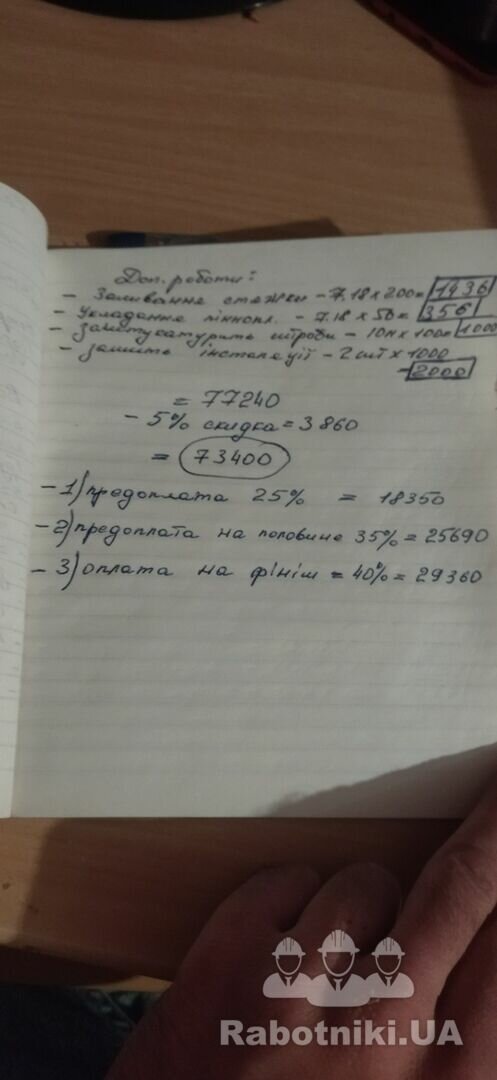 Доп. роботи:
- Заливання стяжки - 7.18 х 200 = 1436
- Укладання пінопл. - 7.18 х 50 = 356
- Заштукатурить штроби - 10м х 100 = 1000
- Зашить інсталяції - 2 шт х 1000
- 2000
= 77240
- 5% скидка = 3860
= 73400
- 1) предоплата 25% = 18350
- 2) предоплата на половине 35% = 25690
- 3) оплата на фініш = 40% = 29360
Rabotniki.UA